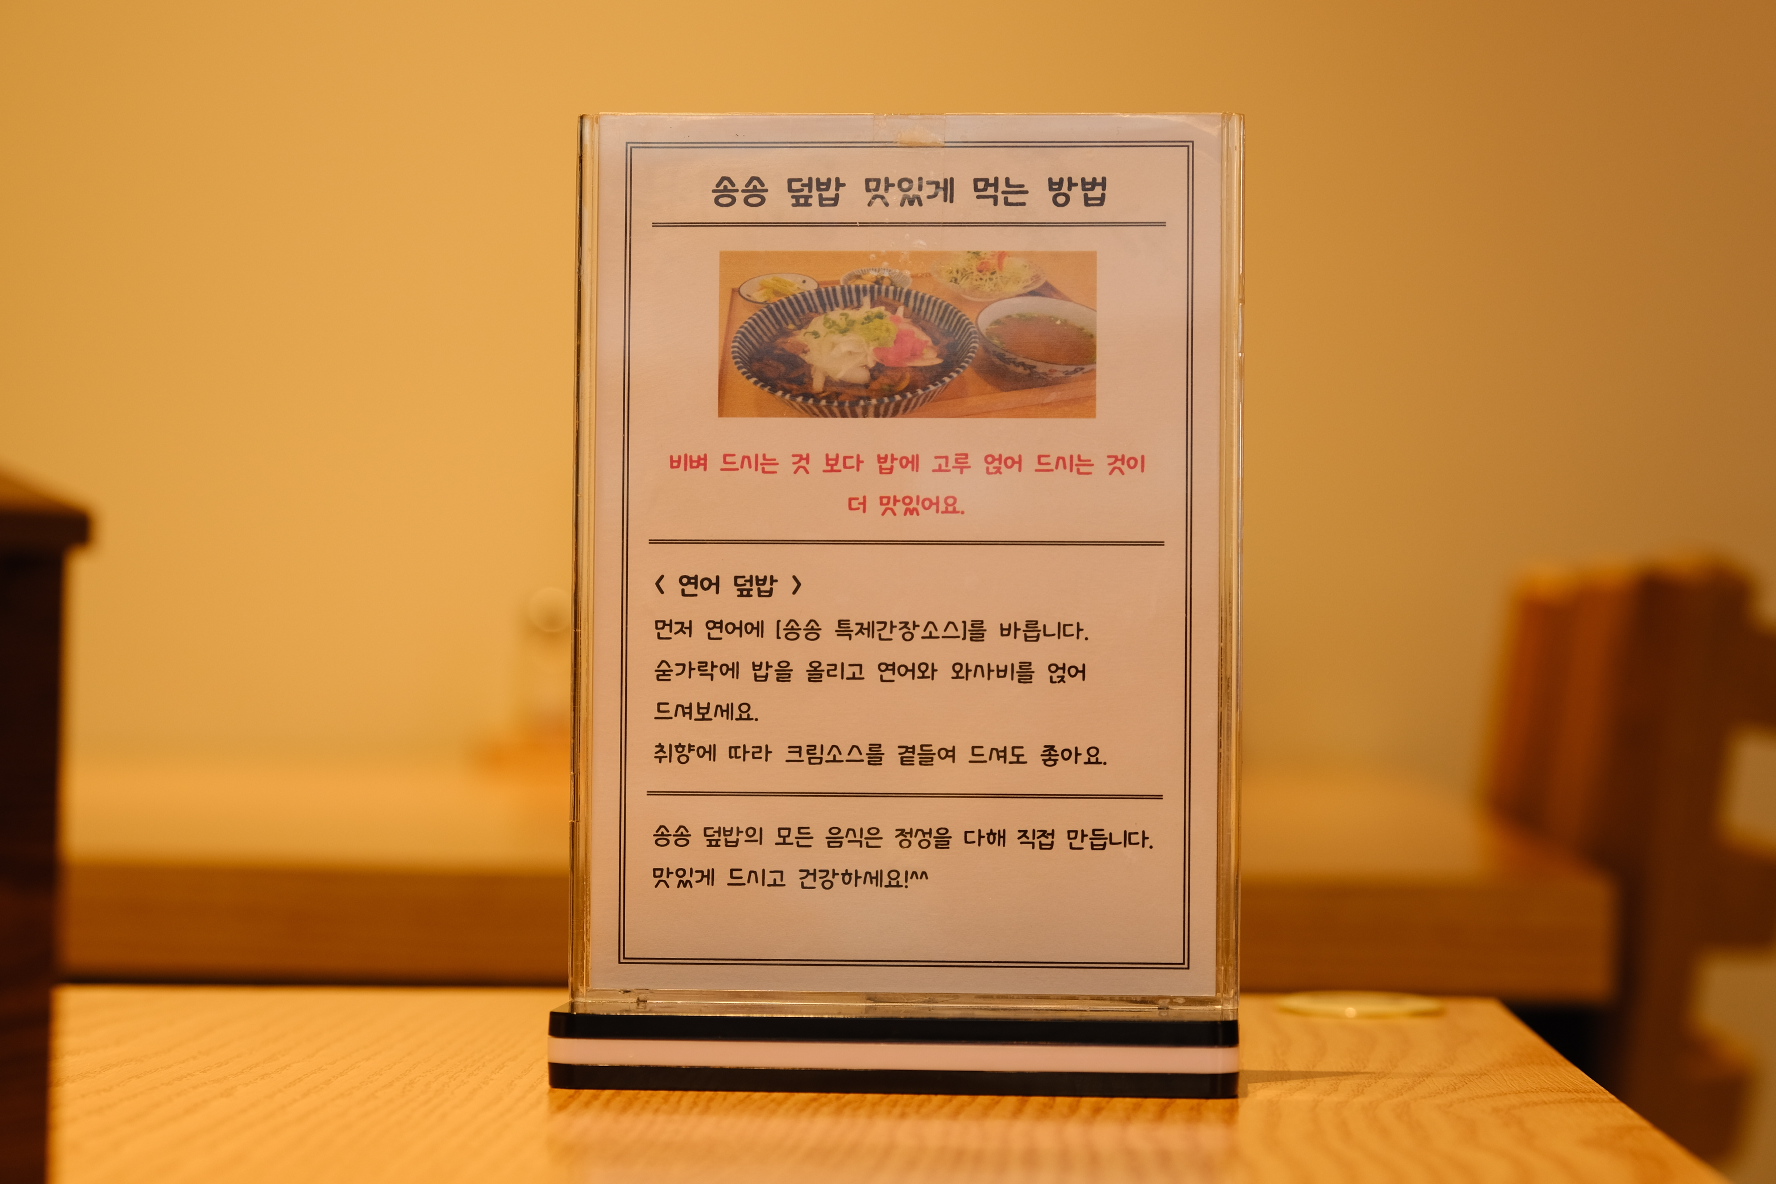 송송 덮밥 맛있게 먹는 방법
비벼 드시는 것 보다 밥에 고루 얹어 드시는 것이
더 맛있어요.
< 연어 덮밥 >
먼저 연어에 [송송 특제간장소스]를 바릅니다.
숟가락에 밥을 올리고 연어와 와사비를 얹어
드셔보세요.
취향에 따라 크림소스를 곁들여 드셔도 좋아요.
송송 덮밥의 모든 음식은 정성을 다해 직접 만듭니다.
맛있게 드시고 건강하세요!^^